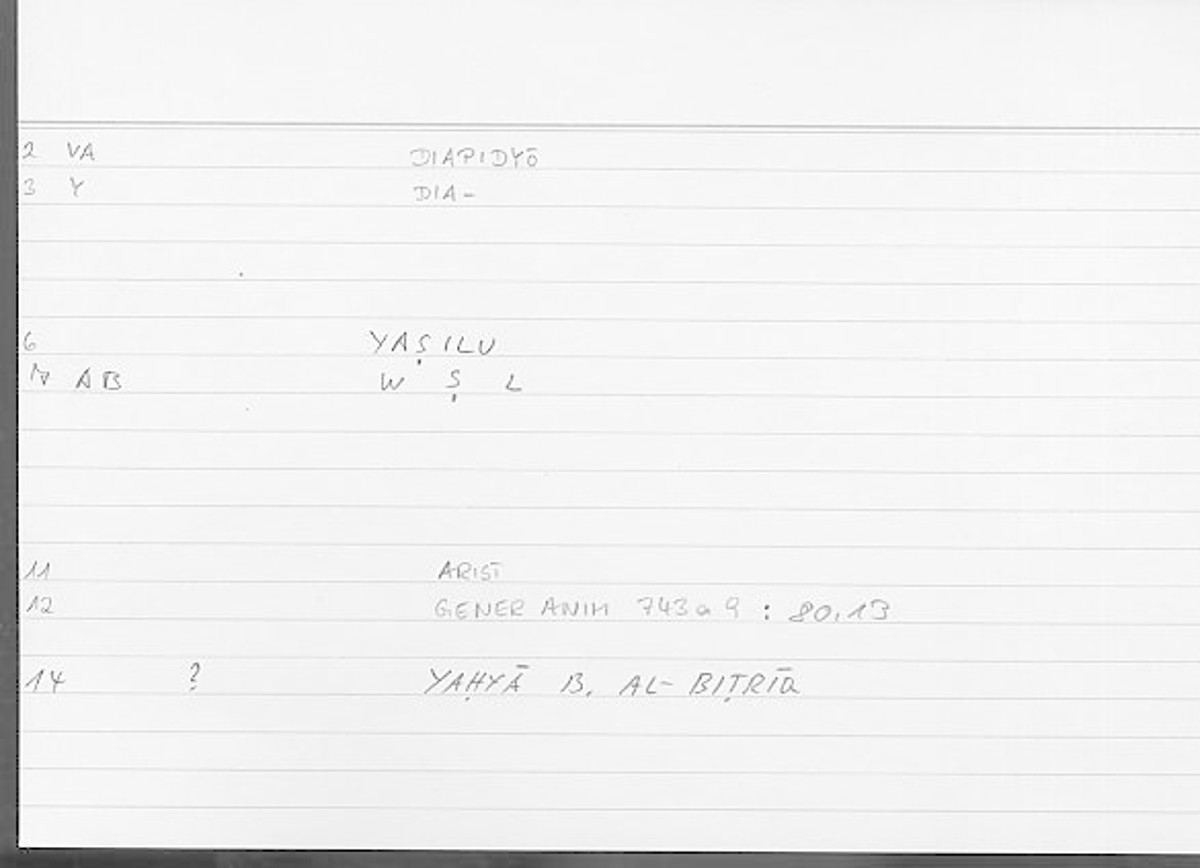 2 VA DIAPIDYŌ
3 Y DIA-
6 YAṢILU
AB W Ṣ L
11 ARIST
12 GENER ANIM 743a9 : 80,13
14 ? YAḤYĀ B. AL-BIṬRĪQ